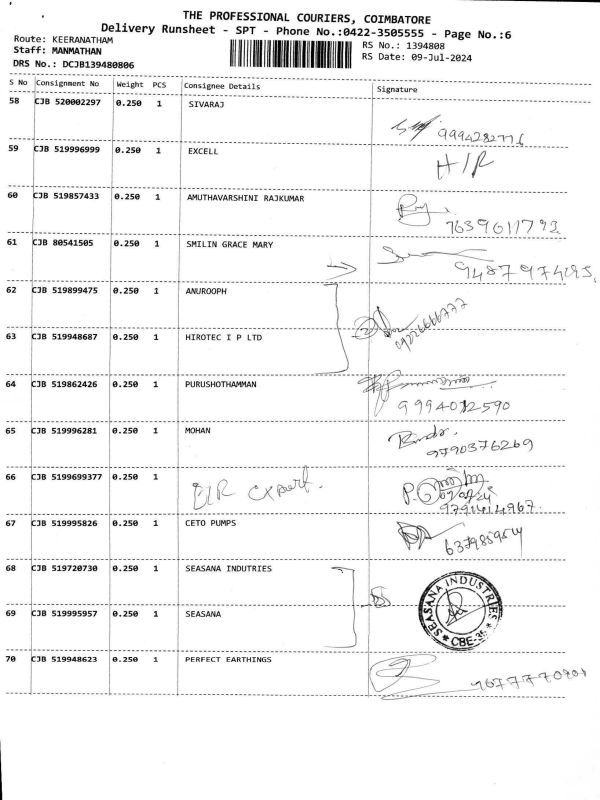 THE PROFESSIONAL COURIERS, COIMBATORE
Delivery Runsheet - SPT - Phone No.:0422-3505555 - Page No.:6
Route: KEERANATHAM
RS No.: 1394808
Staff: MANMATHAN
RS Date: 09-Jul-2024
DRS No.: DCJB139480806
S No Consignment No Weight PCS Consignee Details Signature
58 CJB 520002297 0.250 1 SIVARAJ
9994282776
59 CJB 519996999 0.250 1 EXCELL H/R
60 CJB 519857433 0.250 1 AMUTHAVARSHINI RAJKUMAR
7639611793
61 CJB 80541505 0.250 1 SMILIN GRACE MARY
9487974295
62 CJB 519899475 0.250 1 ANUROOPH
63 CJB 519948687 0.250 1 HIROTEC I P LTD
64 CJB 519862426 0.250 1 PURUSHOTHAMMAN
9994012590
65 CJB 519996281 0.250 1 MOHAN
9790376269
66 CJB 5199699377 0.250 1
67 CJB 519995826 0.250 1 CETO PUMPS
68 CJB 519720730 0.250 1 SEASANA INDUTRIES
SEASANA INDUSTRIES
CBE-35
69 CJB 519995957 0.250 1 SEASANA
70 CJB 519948623 0.250 1 PERFECT EARTHINGS